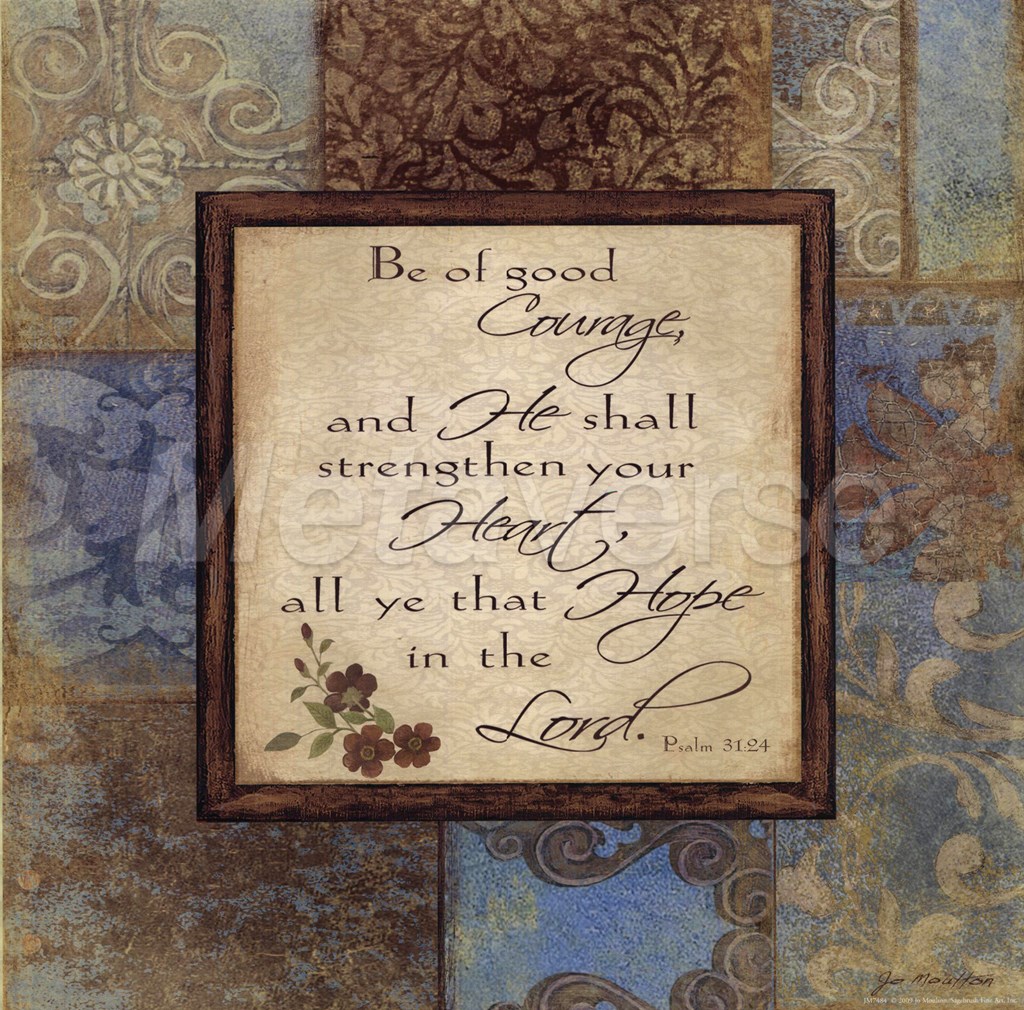 Be of good
Courage,
and He shall
strengthen your
Heart,
all ye that Hope
in the
Lord.
Psalm 31:24
MetaVerse
Jo Moulton